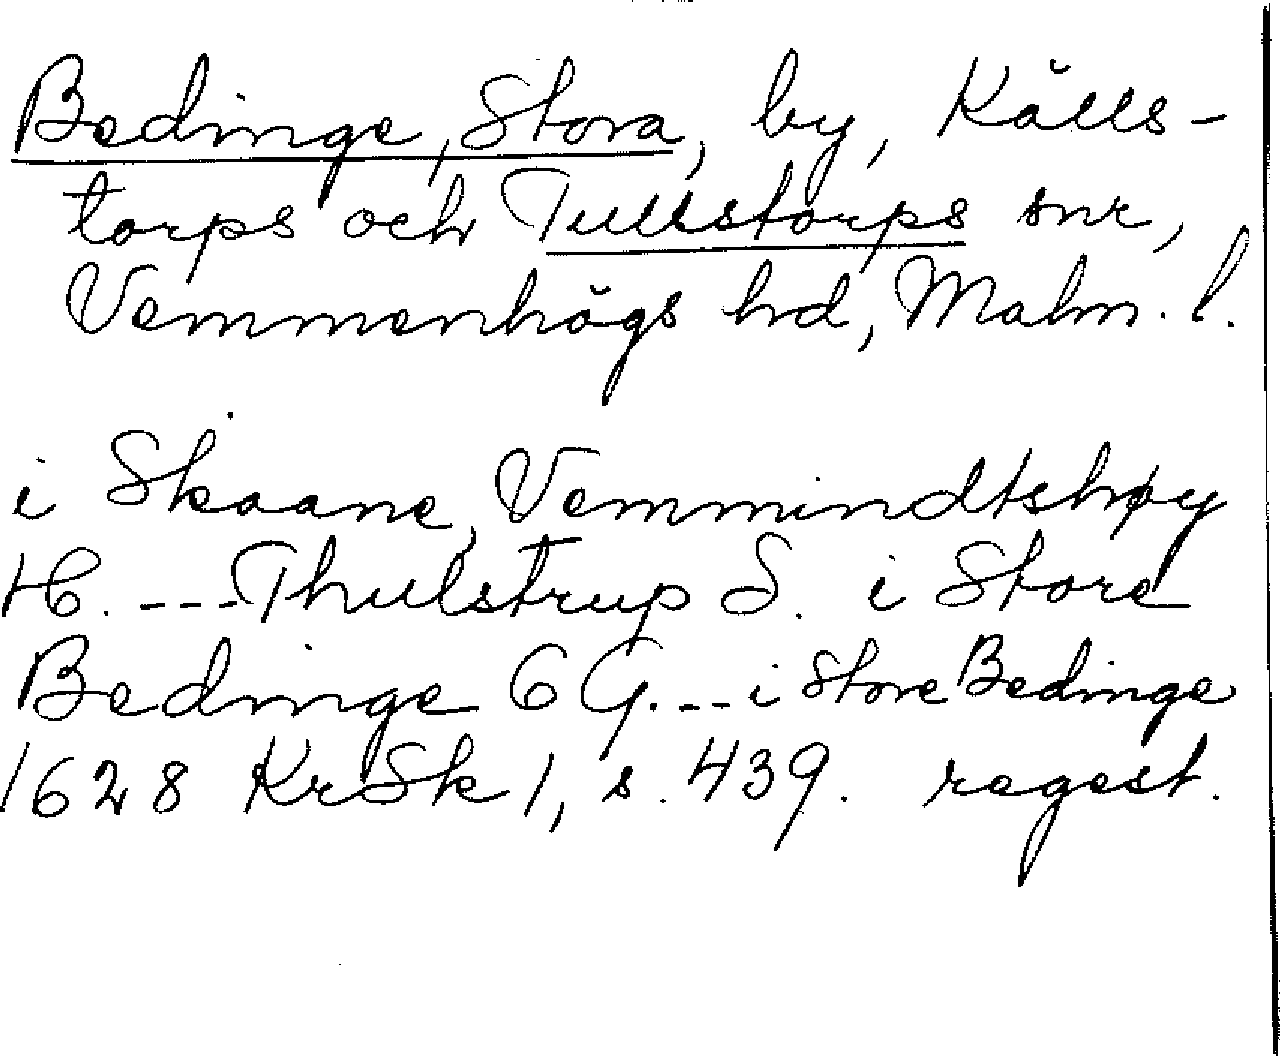 Bedinge, Stora, by, Källs-
torps och Tullstorps snr,
Vemmenhögs hd, Malm. l.
i Skaane, Vemmindtshøy
H. --- Thulstrup S. i Store
Bedinge 6 G. --- i Store Bedinge
1628 KrSk 1, s. 439. regest.